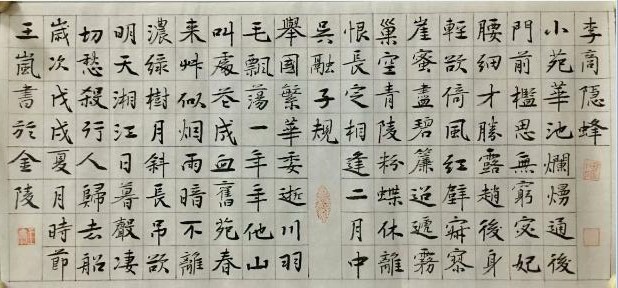 李商隐蜂
小苑華池爛熳通後
門前檻思無窮宓妃
腰細才勝露趙後身
輕欲倚風紅壁寂寥
崖蜜盡碧簾迢遞霧
巢空青陵粉蝶休離
恨長定相逢二月中
吳融子規
舉國繁華委逝川羽
毛飄蕩一年年他山
叫處花成血舊苑春
来艸似烟雨暗不離
濃綠樹月斜長吊欲
明天湘江日暮聲凄
切愁殺行人歸去船
歲次戊戌夏月時節
王嵐書於金陵